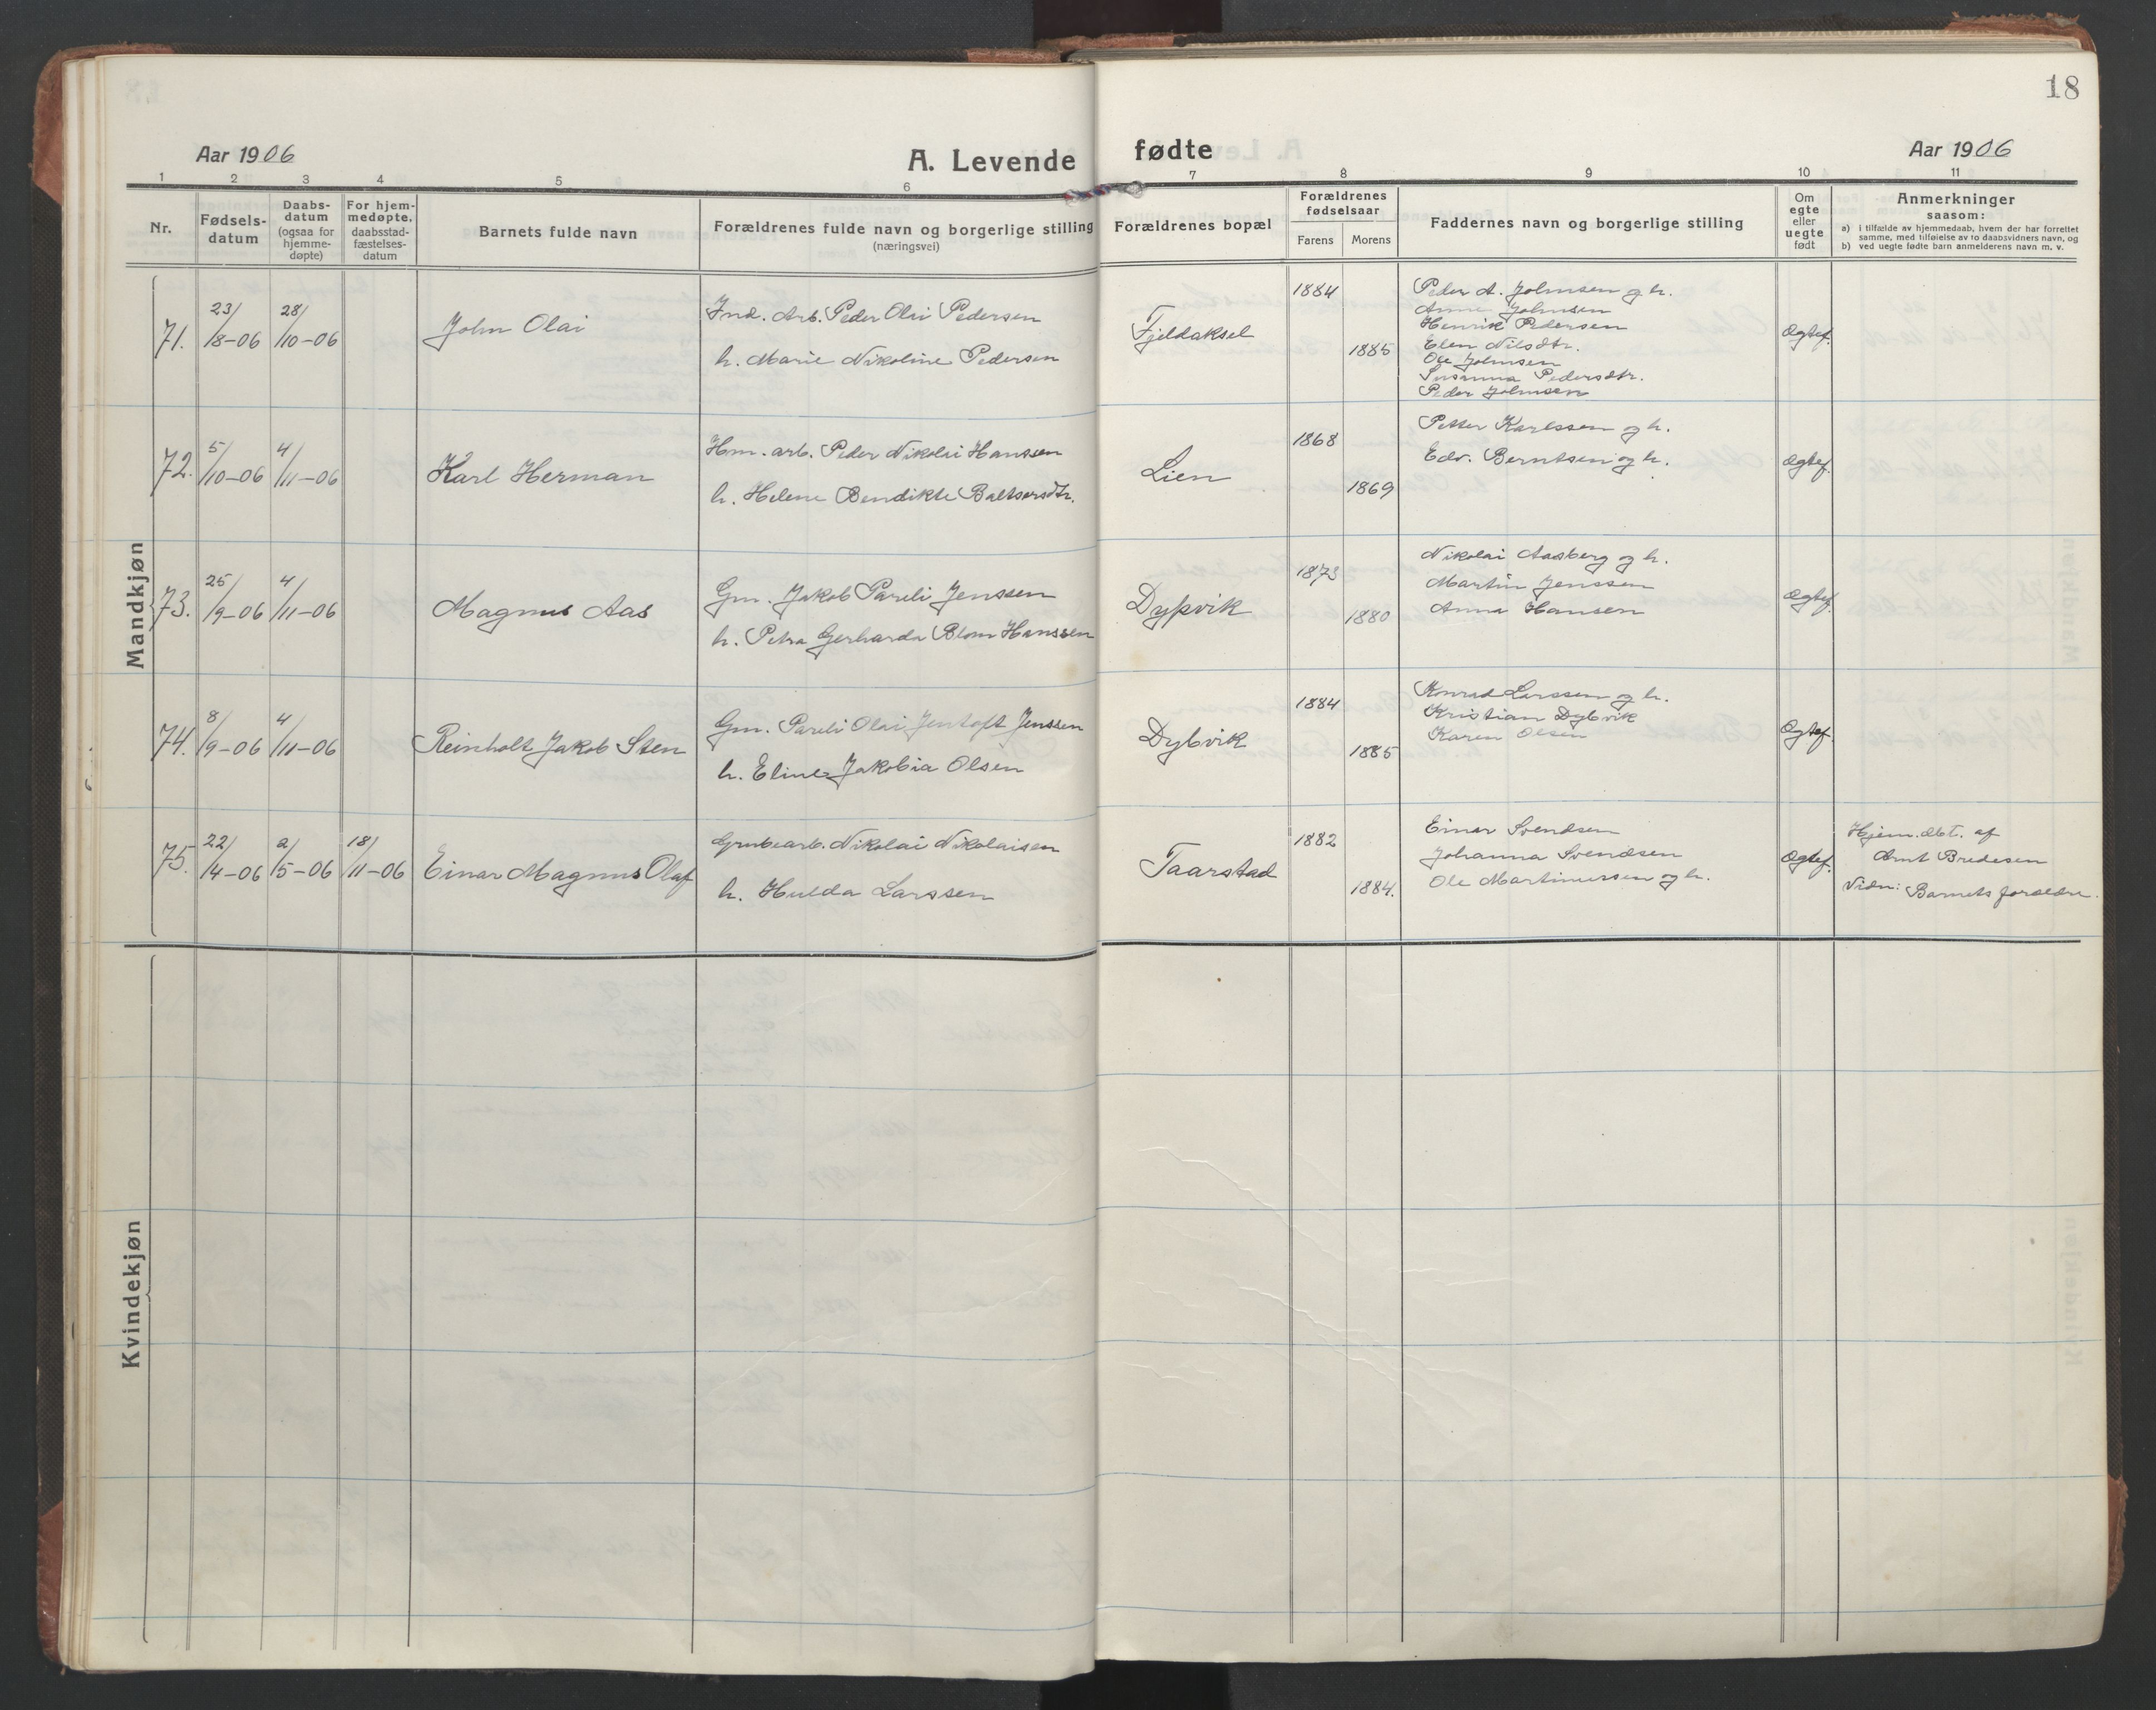 18
Aar 1906
A. Levende fødte
Aar 1906
1 2 3 4 5 6 7 8 9 10 11
Nr.
Fødsels-
datum
Daabs-
datum
(ogsaa for
hjemme-
døpte)
For hjem-
medøpte.
daabsstad-
fæstelses-
datum
Barnets fulde navn
Forældrenes fulde navn og borgerlige stilling
(næringsvei)
Forældrenes bopæl
Forældrenes
fødselsaar
Farens Morens
Faddernes navn og borgerlige stilling
Om
egte
eller
uegte
født
Anmerkninger
saasom:
a) i tilfælde av hjemmedaab, hvem der har forrettet
samme, med tilføielse av to daabsvidners navn, og
b) ved uegte fødte barn anmelderens navn m. v.
Mandkjøn
71.
23/8-06
28/10-06
John Olai
Ind. Arb. Peder Olai Pedersen
h. Marie Nikoline Pedersen
Fjeldaksel
1884
1885
Peder A. Johnsen og h.
Anne Johnsen
Henrik Pedersen
Elen Nilsdtr.
Ole Johnsen
Susanna Pedersdtr.
Peder Johnsen
Ægtef.
72.
5/10-06
4/11-06
Karl Herman
Hm. arb. Peder Nikolai Hanssen
h. Helene Bendikte Baltsersdtr.
Lien
1868
1869
Petter Karlssen og h.
Edv. Berntsen og h.
Ægtef.
73.
25/9-06
4/11-06
Magnus Aas
Gm. Jakob Pareli Jenssen
h. Petra Gerharda Blom Hanssen
Dypvik
1873
1880
Nikolai Aasberg og h.
Martin Jenssen
Anna Hansen
Ægtef.
74.
8/9-06
4/11-06
Reinholt Jakob Sten
Gm. Pareli Olai Jentoft Jenssen
h. Eline Jakobia Olsen
Dybvik
1884
1885
Konrad Larssen og h.
Kristian Dybvik
Karen Olsen
Ægtef.
75.
22/4-06
2/5-06
18/11-06
Einar Magnus Olaf
Grubearb. Nikolai Nikolaisen
h. Hulda Larssen
Taarstad
1882
1884.
Einar Svendsen
Johanna Svendsen
Ole Martinussen og h.
Ægtef.
Hjem. døbt. af
Arnt Bredesen
Vidn: Barnets forældre.
Kvindekjøn